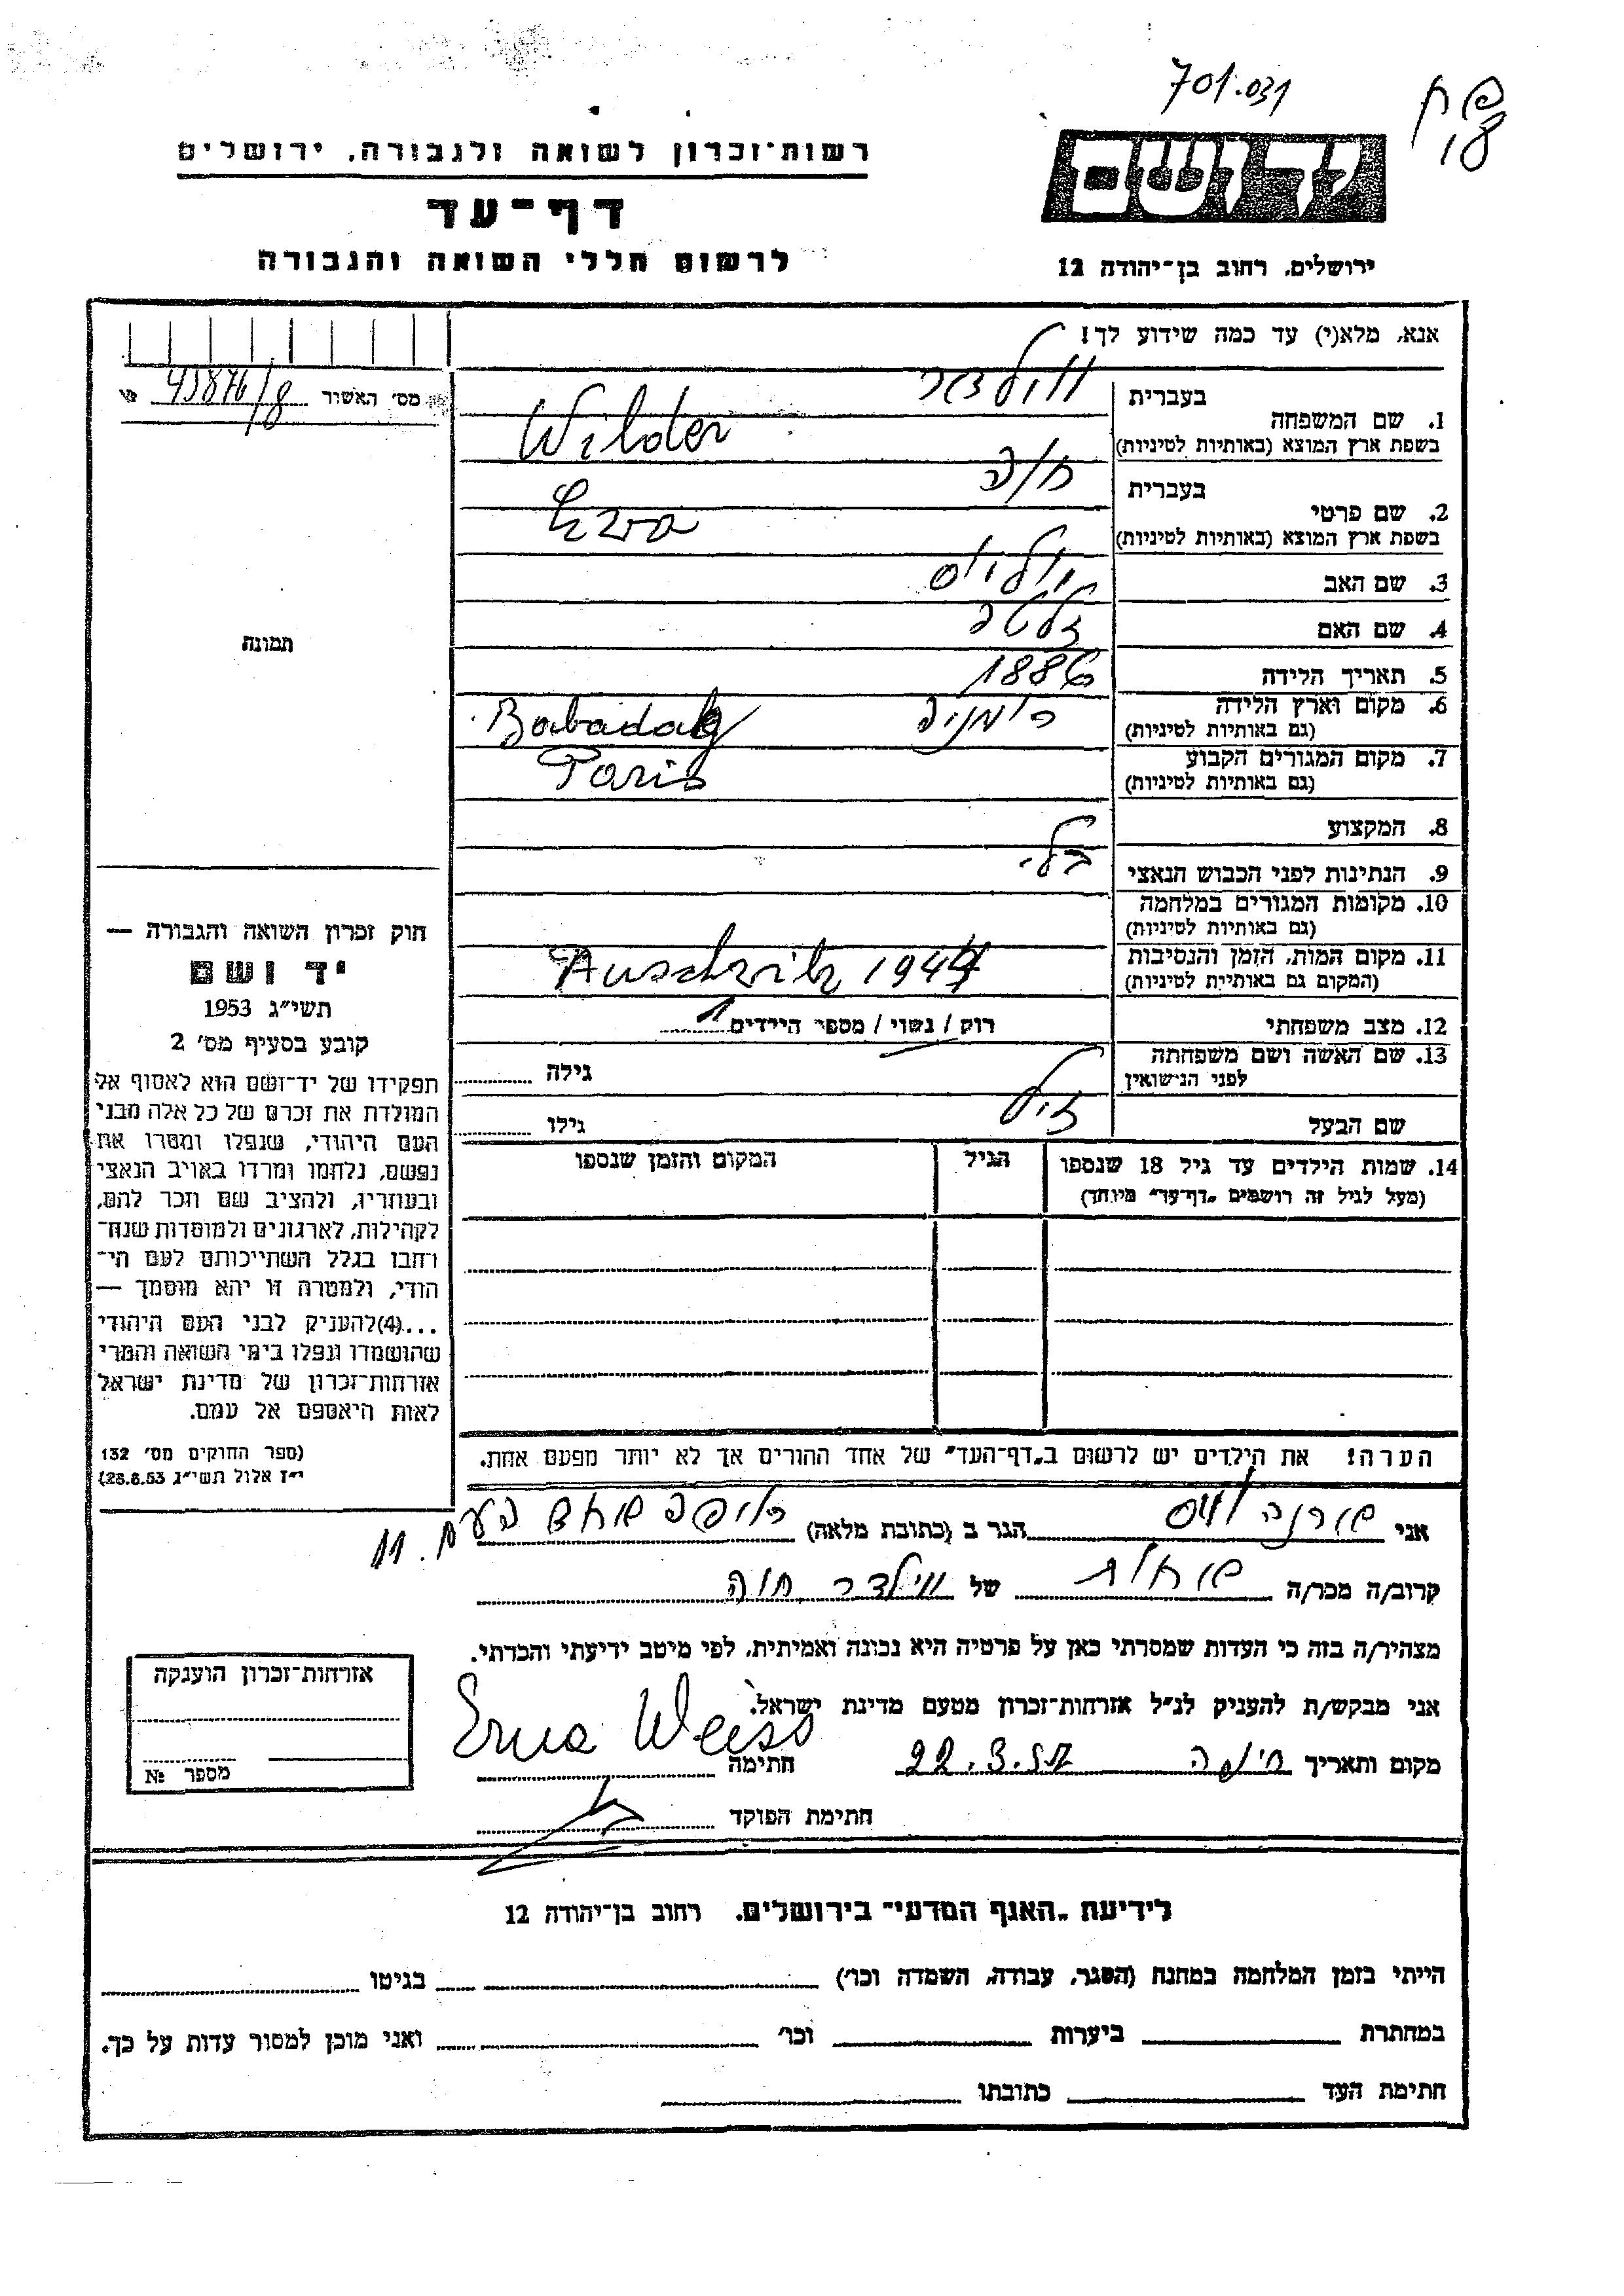 701.031
רשות־זכרון לשואה ולגבורה, ירושלים
דף־עד
לרשום חללי השואה והגבורה
יד ושם
ירושלים, רחוב בן־יהודה 12
אנא, מלא(י) עד כמה שידוע לך!
מס׳ האשור 43876/8 №
1. שם המשפחה
בעברית ווילדר
בשפת ארץ המוצא (באותיות לטיניות) Wilder
2. שם פרטי
בעברית חוה
בשפת ארץ המוצא (באותיות לטיניות)
3. שם האב
4. שם האם
5. תאריך הלידה 1886
6. מקום וארץ הלידה רומניה Babadag
(גם באותיות לטיניות)
7. מקום המגורים הקבוע Paris
(גם באותיות לטיניות)
8. המקצוע
9. הנתינות לפני הכבוש הנאצי
10. מקומות המגורים במלחמה
(גם באותיות לטיניות)
11. מקום המות, הזמן והנסיבות Auschwitz 1944
(המקום גם באותיות לטיניות)
12. מצב משפחתי רוק / נשוי / מספר הילדים 1
13. שם האשה ושם משפחתה
לפני הנישואין
גילה
שם הבעל
גילו
14. שמות הילדים עד גיל 18 שנספו הגיל המקום והזמן שנספו
(מעל לגיל זה רושמים „דף־עד״ מיוחד)
הערה! את הילדים יש לרשום ב„דף־העד״ של אחד ההורים אך לא יותר מפעם אחת.
תמונה
חוק זכרון השואה והגבורה —
יד ושם
תשי״ג 1953
קובע בסעיף מס׳ 2
תפקידו של יד־ושם הוא לאסוף אל
המולדת את זכרם של כל אלה מבני
העם היהודי, שנפלו ומסרו את
נפשם, נלחמו ומרדו באויב הנאצי
ובעוזריו, ולהציב שם וזכר להם,
לקהילות, לארגונים ולמוסדות שנח־
רבו בגלל השתייכותם לעם הי־
הודי, ולמטרה זו יהא מוסמך —
...(4)להעניק לבני העם היהודי
שהושמדו ונפלו בימי השואה והמרי
אזרחות־זכרון של מדינת ישראל
לאות היאספם אל עמם.
(ספר החוקים מס׳ 132
י״ז אלול תשי״ג 28.8.53)
אני ארנה וייס הגר ב (כתובת מלאה) חיפה אחד העם 11.
קרוב/ה מכר/ה אחות של ווילדר חוה
מצהיר/ה בזה כי העדות שמסרתי כאן על פרטיה היא נכונה ואמיתית, לפי מיטב ידיעתי והכרתי.
אני מבקש/ת להעניק לנ״ל אזרחות־זכרון מטעם מדינת ישראל.
מקום ותאריך חיפה 22.3.57 חתימה Erna Weiss
חתימת הפוקד
אזרחות־זכרון הוענקה
מספר №
לידיעת „האגף המדעי״ בירושלים, רחוב בן־יהודה 12
הייתי בזמן המלחמה במחנה (הסגר, עבודה, השמדה וכו׳) בגיטו
במחתרת ביערות וכו׳ ואני מוכן למסור עדות על כך.
חתימת העד כתובתו